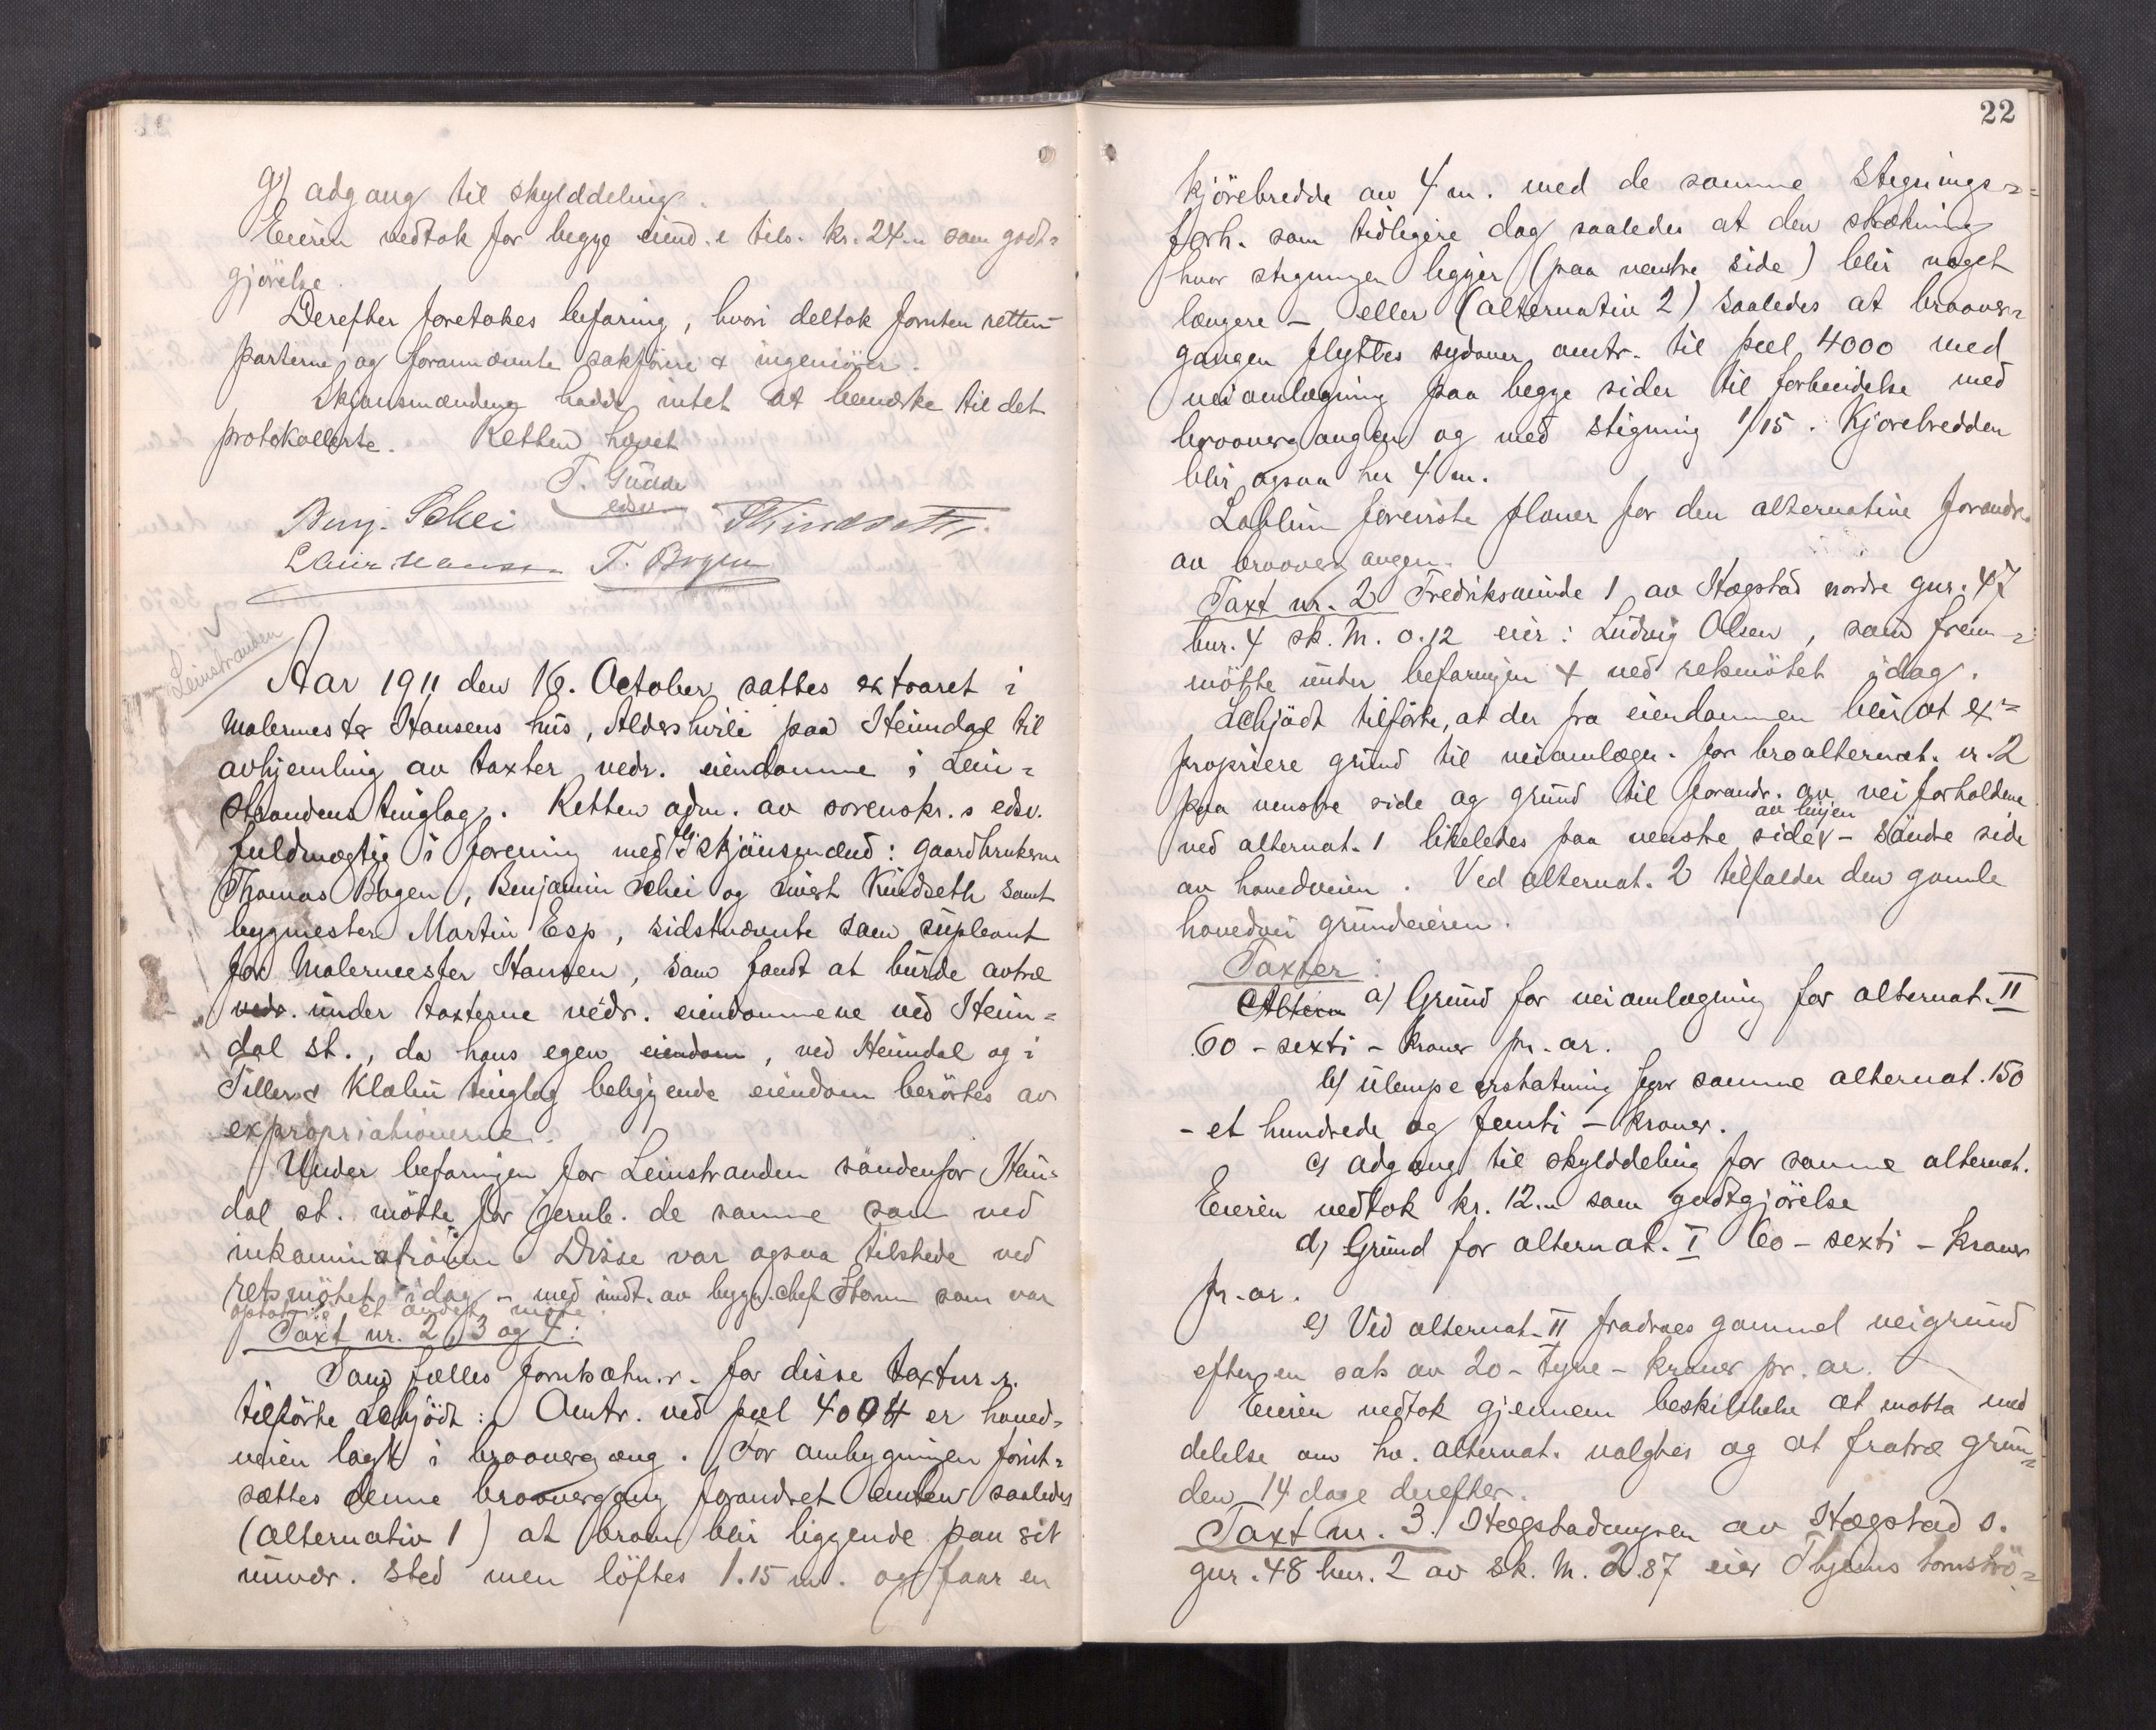 g) adgang til skylddeling.
Eieren vedtok for begge eiend.e tils. kr. 24.- som godt-
gjörelse.
Derefter foretokes befaring, hvori deltok foruten retten
parterne og forannævnte sakförere & ingeniörer.
Skjönsmændene hadde intet at bemerke til det
protokollerte. Retten hævet
T. Gudde
edsv.
Benj. Schei Kindseth
Laur. Hansen T. Bogen
Leinstranden
Aar 1911 den 16. October sattes extraret i
Malermester Hansens hus, Aldershvile paa Heimdal til
avhjemling av taxter vedr. eiendomme i Lein-
strandens tinglag. Retten adm. av sorenskr.s edsv.
fuldmægtig i forening med skjönsmænd: gaardbrukerne
Thomas Bogen, Benjamin Schei og Sivert Kindseth samt
bygmester Martin Esp, sidstnævnte som supleant
for Malermester Hansen, som fandt at burde avtræ
vedr. under taxterne vedr. eiendommene ved Heim-
dal st., da hans egen eiendom, ved Heimdal og i
Tiller & Klæbu tinglag beliggende eiendom berörtes av
expropriationerne.
Under befaringen for Leinstranden söndenfor Heim-
dal st. mötte for jernb. de samme som ved
inkaminationen. Disse var ogsaa tilstede ved
retsmötet idag - med undt. av bygn.chef Storm som var
optat i et andet möte.
Taxt nr. 2, 3 og 4:
Som fælles forutsætn.r. for disse taxtnr.r.
tilförte Schjödt: Omtr. ved pæl 4004 er hoved-
veien lagt i broovergang. For ombygningen forut-
sættes denne broovergang forandret enten saaledes
(alternativ 1) at broen blir liggende paa sit
nuvær. sted men löftes 1.15 m. og faar en
22
kjörebredde av 4 m. med de samme stignings-
forh. som tidligere dog saaledes at den strækning
hvor stigningen ligger (paa venstre side) blir noget
længere - eller (alternativ 2) saaledes at broover-
gangen flyttes sydover omtr. til pæl 4000 med
veiomlægning paa begge sider til forbindelse med
broovergangen og med stigning 1/15. Kjörebredden
blir ogsaa her 4 m.
foreviste planer for den alternative forandr.
av broovergangen.
Taxt nr. 2 Fredriksminde 1 av Hægstad nordre gnr. 47
bnr. 4 sk. M. 0.12 eier: Ludvig Olsen, som frem-
mötte under befaringen & ved retsmötet idag.
Schjödt tilförte, at der fra eiendommen blir at ex-
propriere grund til veiomlægn. for broalternat. nr. 2
paa venstre side og grund til forandr. av veiforholdene
av linjen
ved alternat. 1 likeledes paa venstre side - söndre side
av hovedveien. Ved alternat. 2 tilfalder den gamle
hovedvei grundeieren.
Taxter:
Altern a) Grund for veiomlægning for alternat. II
60 - sexti - kroner pr. ar.
b) ulempeerstatning for samme alternat. 150
- et hundrede og femti - kroner.
c) adgang til skylddeling for samme alternat.
Eieren vedtok kr. 12.- som godtgjörelse
d) Grund for alternat. I 60 - sexti - kroner
pr. ar.
e) Ved alternat. II fradraes gammel veigrund
efter en sats av 20 - tyve - kroner pr. ar.
Eieren vedtok gjennem beskikkelse at motta med
delelse om hv. alternat. valgtes og at fratræ grun-
den 14 dage derefter.
Taxt nr. 3. Hægstadengen av Hægstad s.
gnr. 48 bnr. 2 av sk. M. 2.87 eier